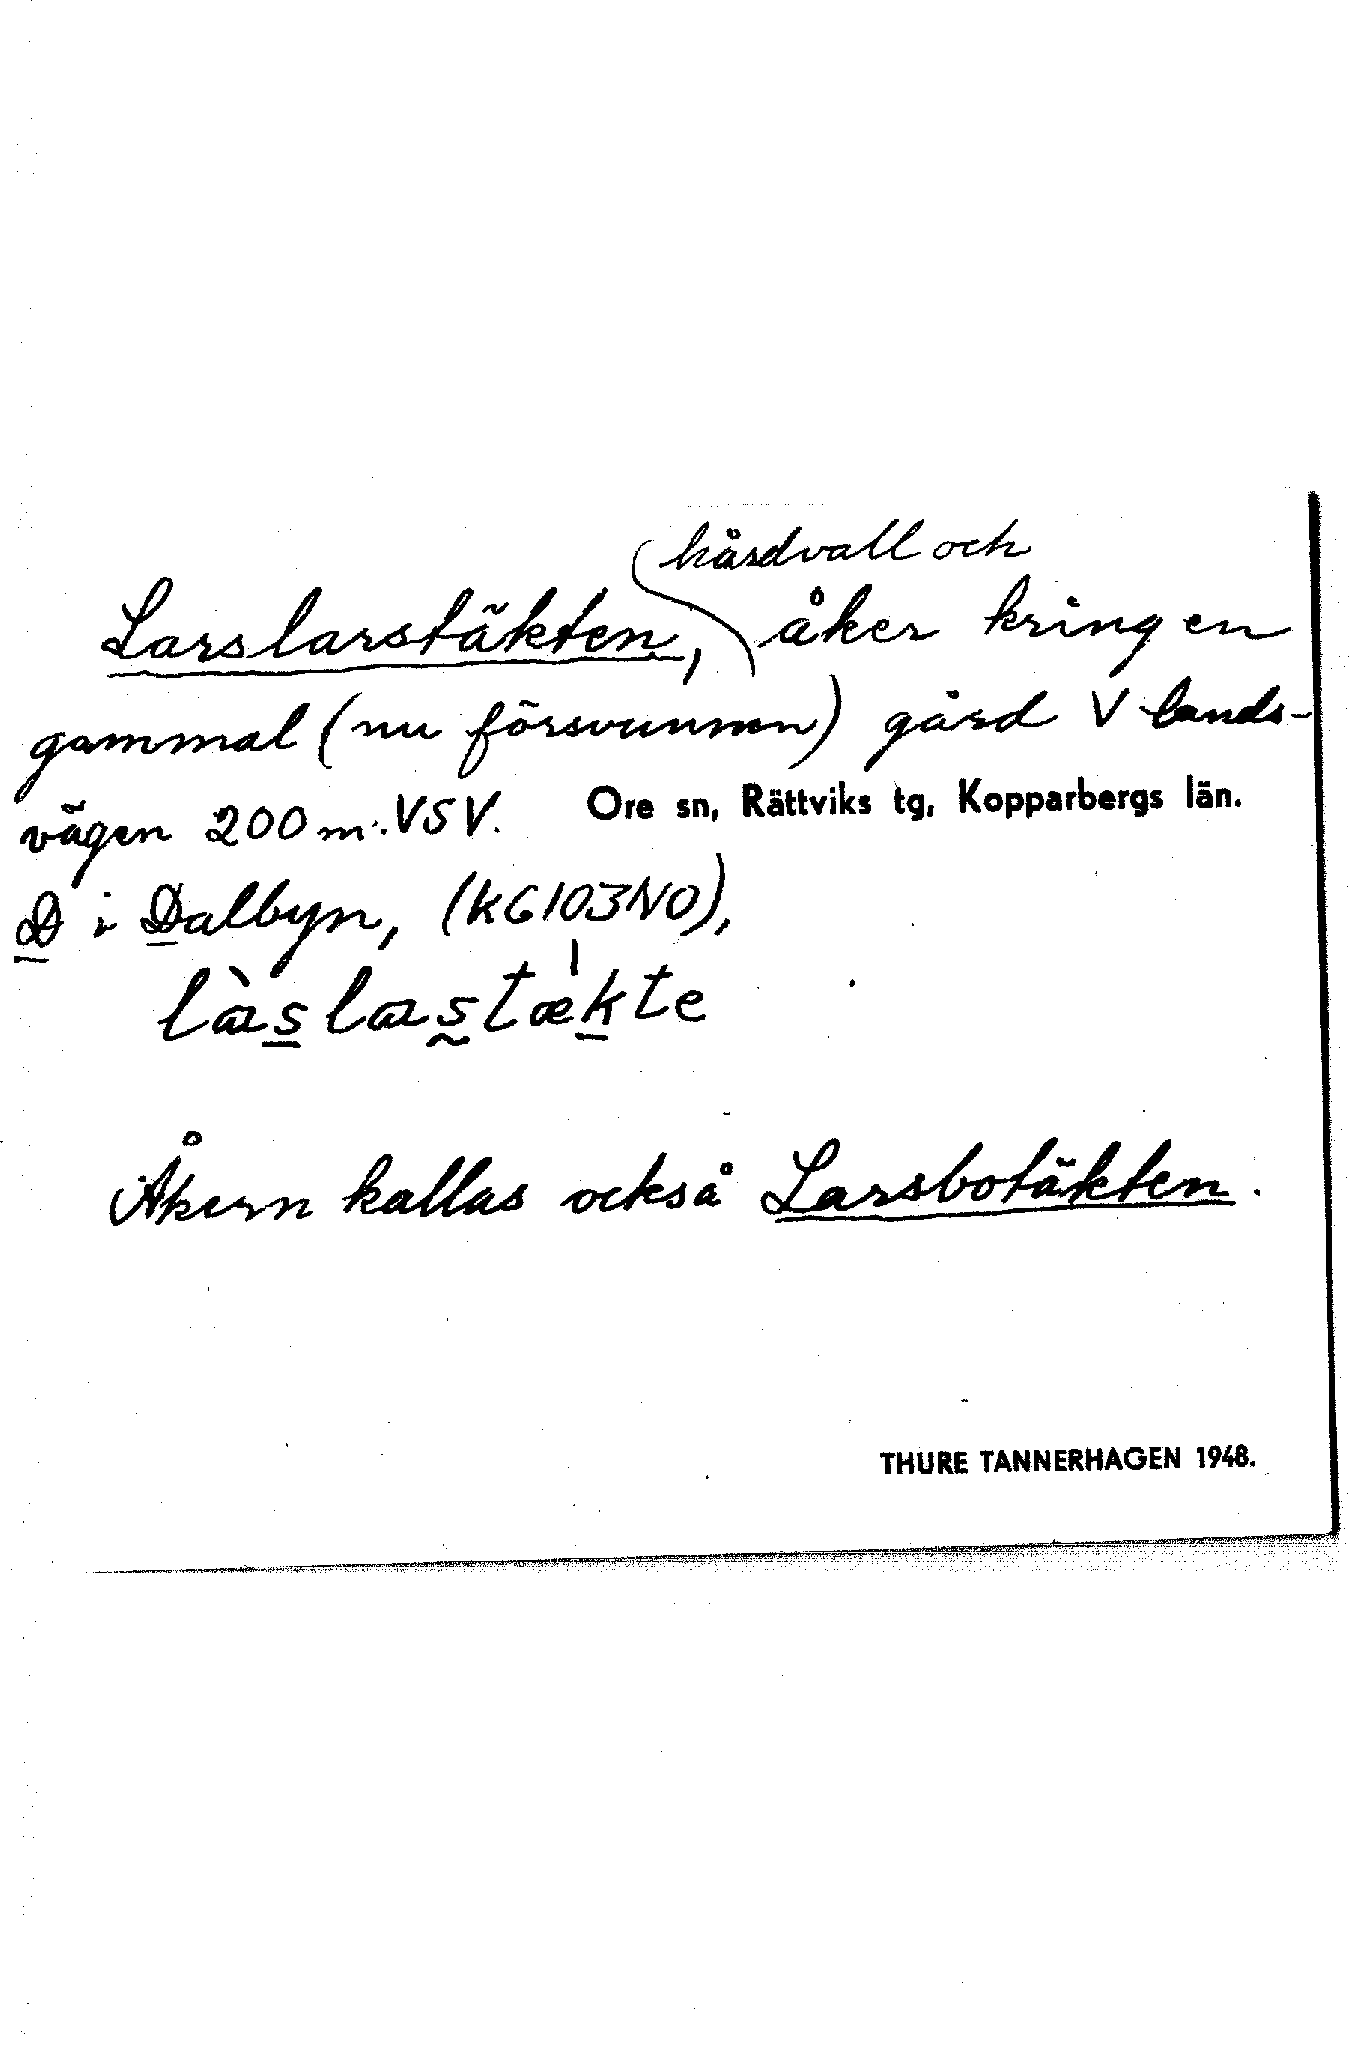 hårdvall och
Larslarstäkten, åker kring en
gammal (nu försvunnen) gård V lands-
vägen 200 m. VSV. Ore sn, Rättviks tg, Kopparbergs län.
D i Dalbyn, (KG103NO),
làslastækte
Åkern kallas också Larsbotäkten.
THURE TANNERHAGEN 1948.